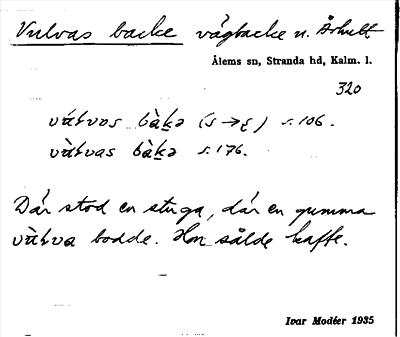 Vulvas backe vägbacke n. Århult
Ålems sn, Stranda hd, Kalm. l.
320
bàḵə (s→ʂ) s. 106.
bàḵə s. 176.
Där stod en stuga, där en gumma
bodde. Hon sålde kaffe.
Ivar Modéer 1935